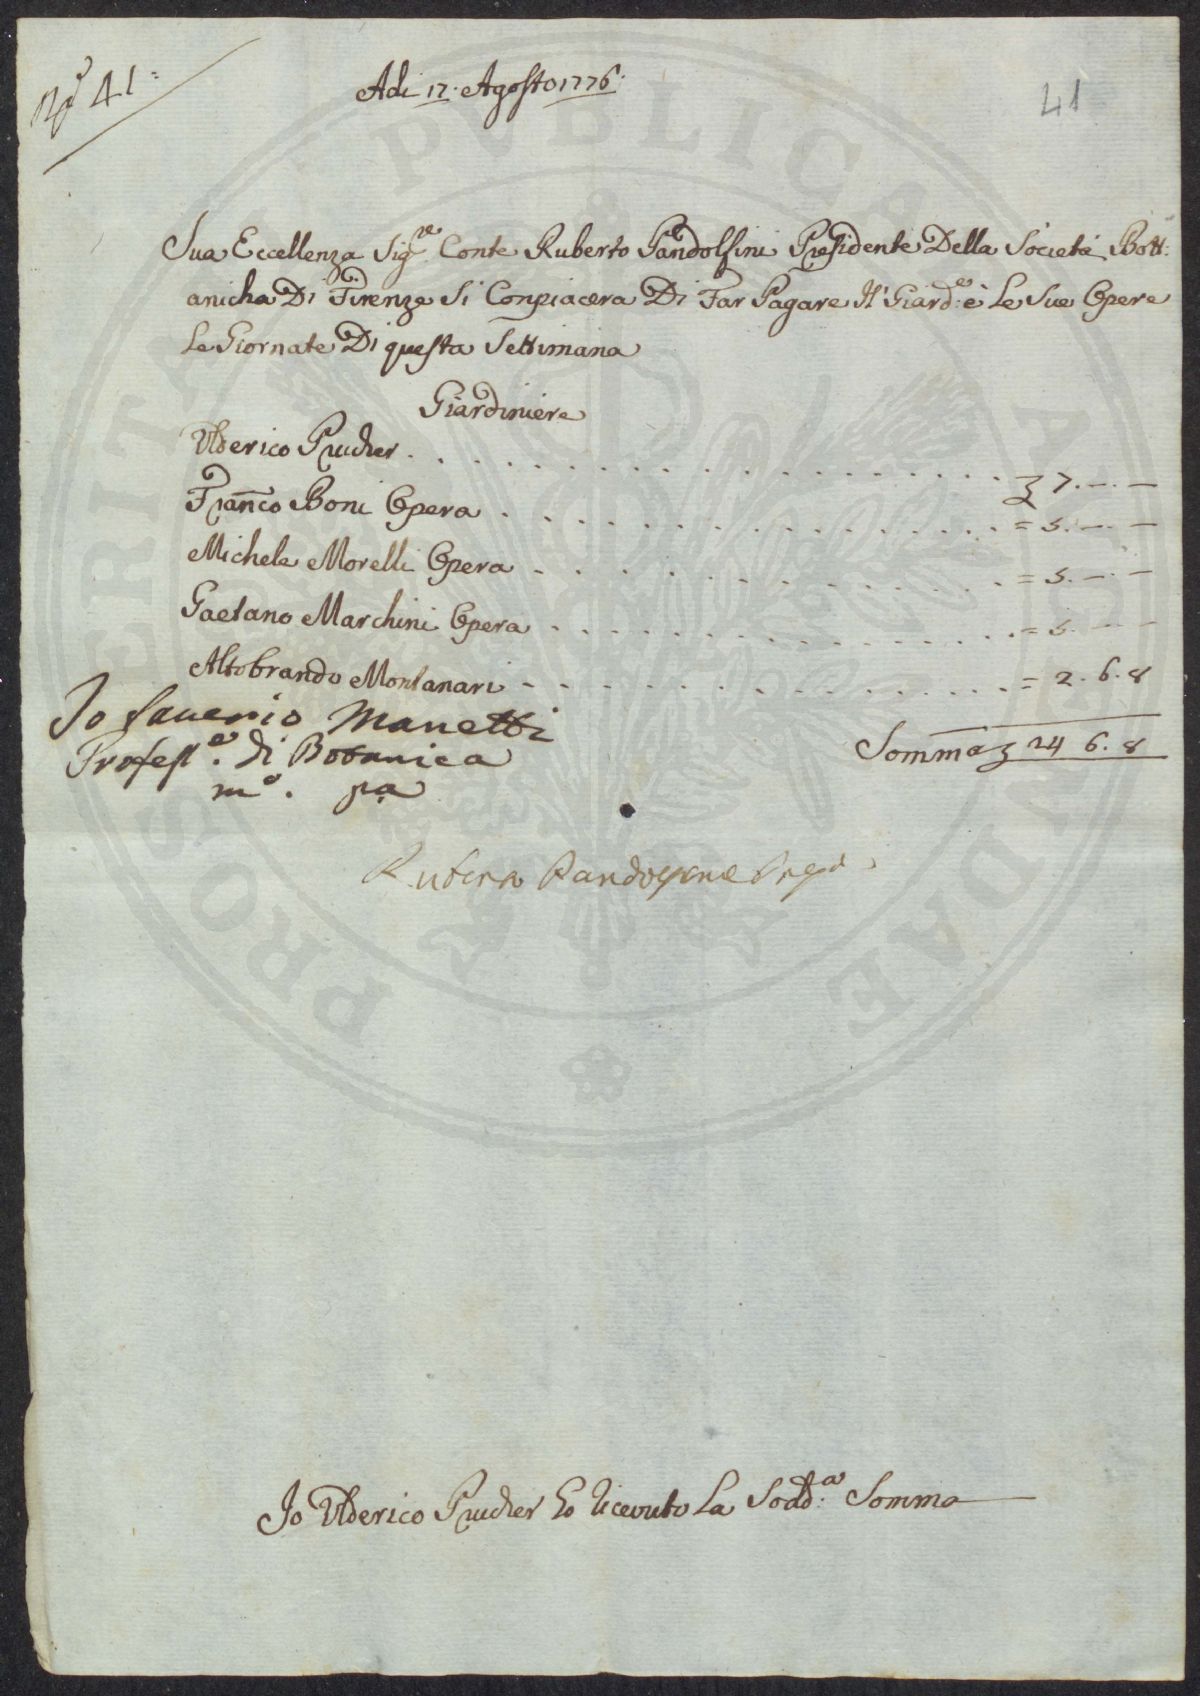 41:
Adi 17. Agosto 1776.
41
Sua Eccellenza Sigre Conte Ruberto Pandolfini Presidente Della Società Bott:
anicha Di Firenze Si Conpiacera Di Far Pagare Il Giard:e è Le Sue Opere
Le Giornate Di questa Settimana
Giardiniere
Ulderico Prucher . . . . . . . . . . . . . . . . . . . . £ 7.—.—
Franco Boni Opera . . . . . . . . . . . . . . . . . . = 5.—.—
Michele Morelli Opera . . . . . . . . . . . . . . . = 5.—.—
Gaetano Marchini Opera . . . . . . . . . . . . . . = 5.—.—
Altobrando Montanari . . . . . . . . . . . . . . . = 2.6.8
Somma £ 24 6.8
Io Saverio Manetti
Profess.e di Botanica
mo. pa
Ruberto Pandolfini Presid
Io Ulderico Prucher ho riceuto La Sodd:a Somma
PROSPERITATI PUBLICAE AUGENDAE